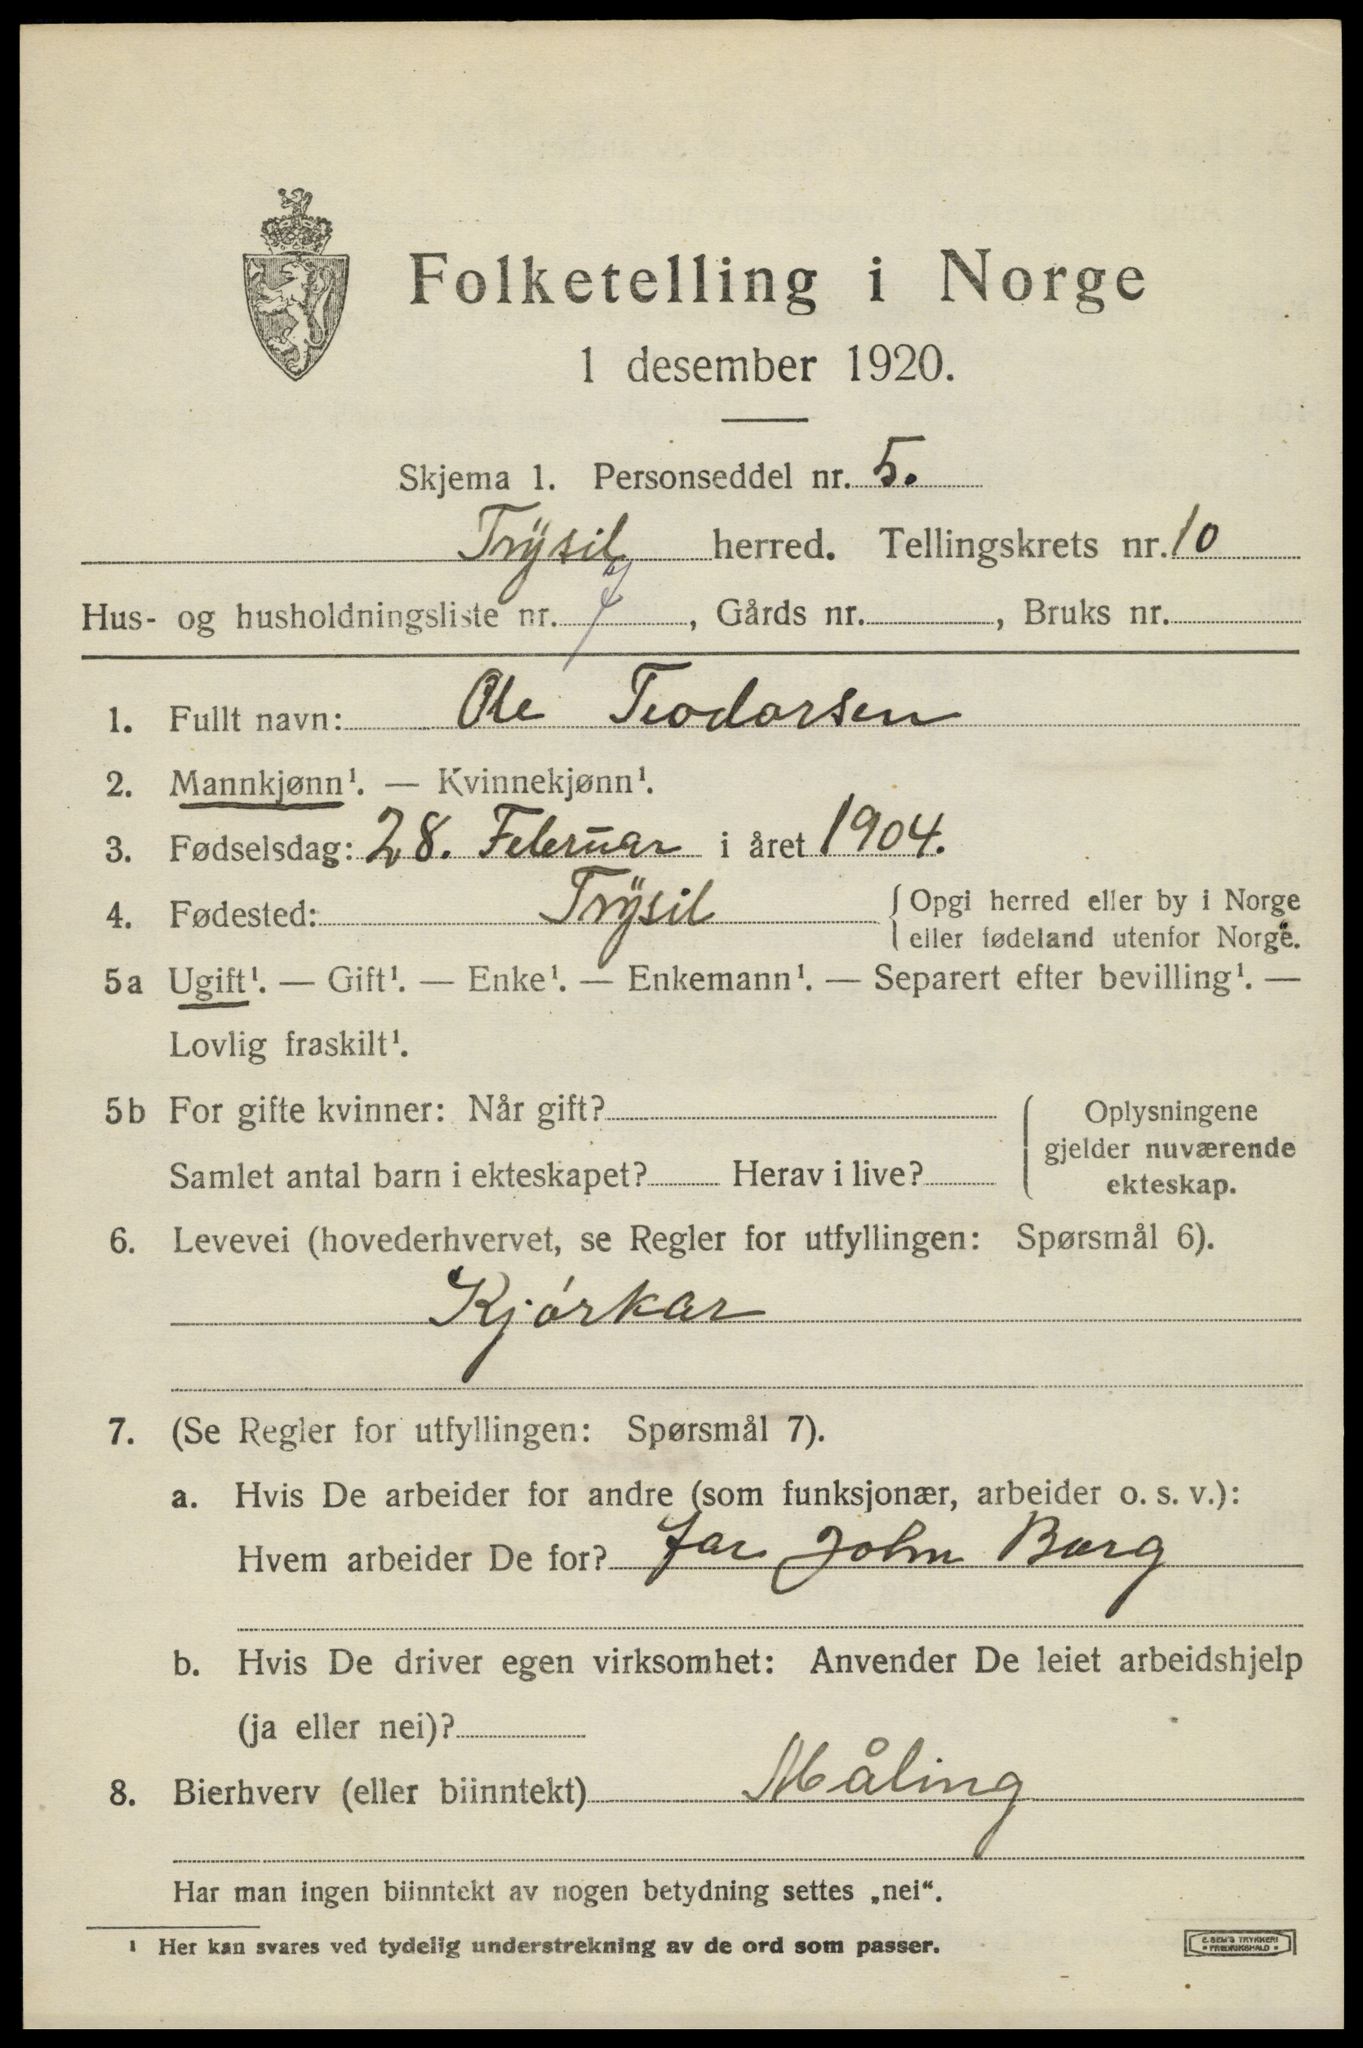 Folketelling i Norge
1 desember 1920.
Skjema 1. Personseddel nr. 5.
Trÿsil herred. Tellingskrets nr. 10
Hus- og husholdningsliste nr. 7, Gårds nr. , Bruks nr.
1. Fullt navn: Ole Teodorsen
2. Mannkjønn¹. — Kvinnekjønn¹.
3. Fødselsdag: 28. Februar i året 1904.
4. Fødested: Trÿsil { Opgi herred eller by i Norge
eller fødeland utenfor Norge.
5a Ugift¹. — Gift¹. — Enke¹. — Enkemann¹. — Separert efter bevilling¹. —
Lovlig fraskilt¹.
5b For gifte kvinner: Når gift? Oplysningene
gjelder nuværende
Samlet antal barn i ekteskapet? Herav i live? ekteskap.
6. Levevei (hovederhvervet, se Regler for utfyllingen: Spørsmål 6).
Kjórkar
7. (Se Regler for utfyllingen: Spørsmål 7).
a. Hvis De arbeider for andre (som funksjonær, arbeider o. s. v.):
Hvem arbeider De for? for John Borg
b. Hvis De driver egen virksomhet: Anvender De leiet arbeidshjelp
(ja eller nei)?
8. Bierhverv (eller biinntekt) Måling
Har man ingen biinntekt av nogen betydning settes „nei“.
¹ Her kan svares ved tydelig understrekning av de ord som passer.
E. SEM'S TRYKKERI
* FREDRIKSHALD *